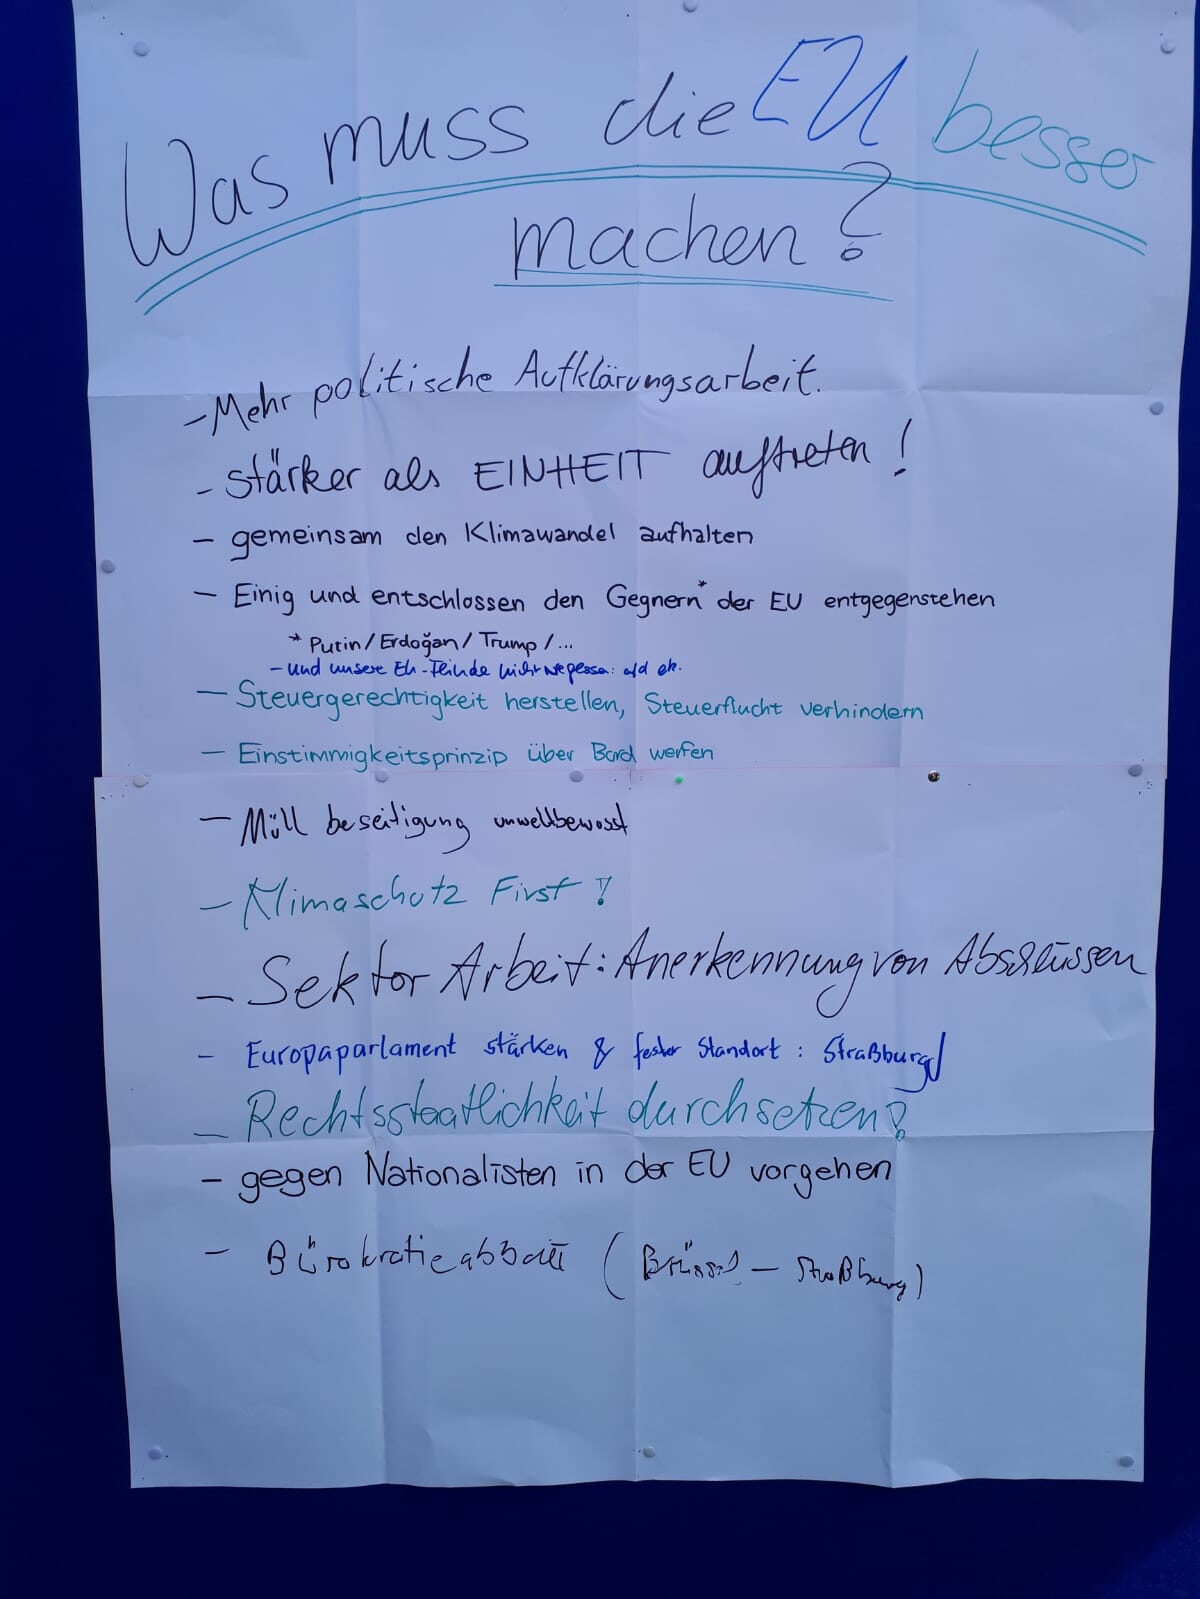 Was muss die EU besser
machen?
- Mehr politische Aufklärungsarbeit.
- stärker als EINHEIT auftreten!
- gemeinsam den Klimawandel aufhalten
- Einig und entschlossen den Gegnern* der EU entgegenstehen
* Putin/Erdoğan/Trump/...
- und unsere EU-Feinde nicht
- Steuergerechtigkeit herstellen, Steuerflucht verhindern
- Einstimmigkeitsprinzip über Bord werfen
- Müll beseitigung umweltbewusst
- Klimaschutz First!
- Sektor Arbeit: Anerkennung von Abschlüssen
- Europaparlament stärken & fester Standort: Straßburg
- Rechtsstaatlichkeit durchsetzen!
- gegen Nationalisten in der EU vorgehen
- Bürokratieabbau (Brüssel - Straßburg)